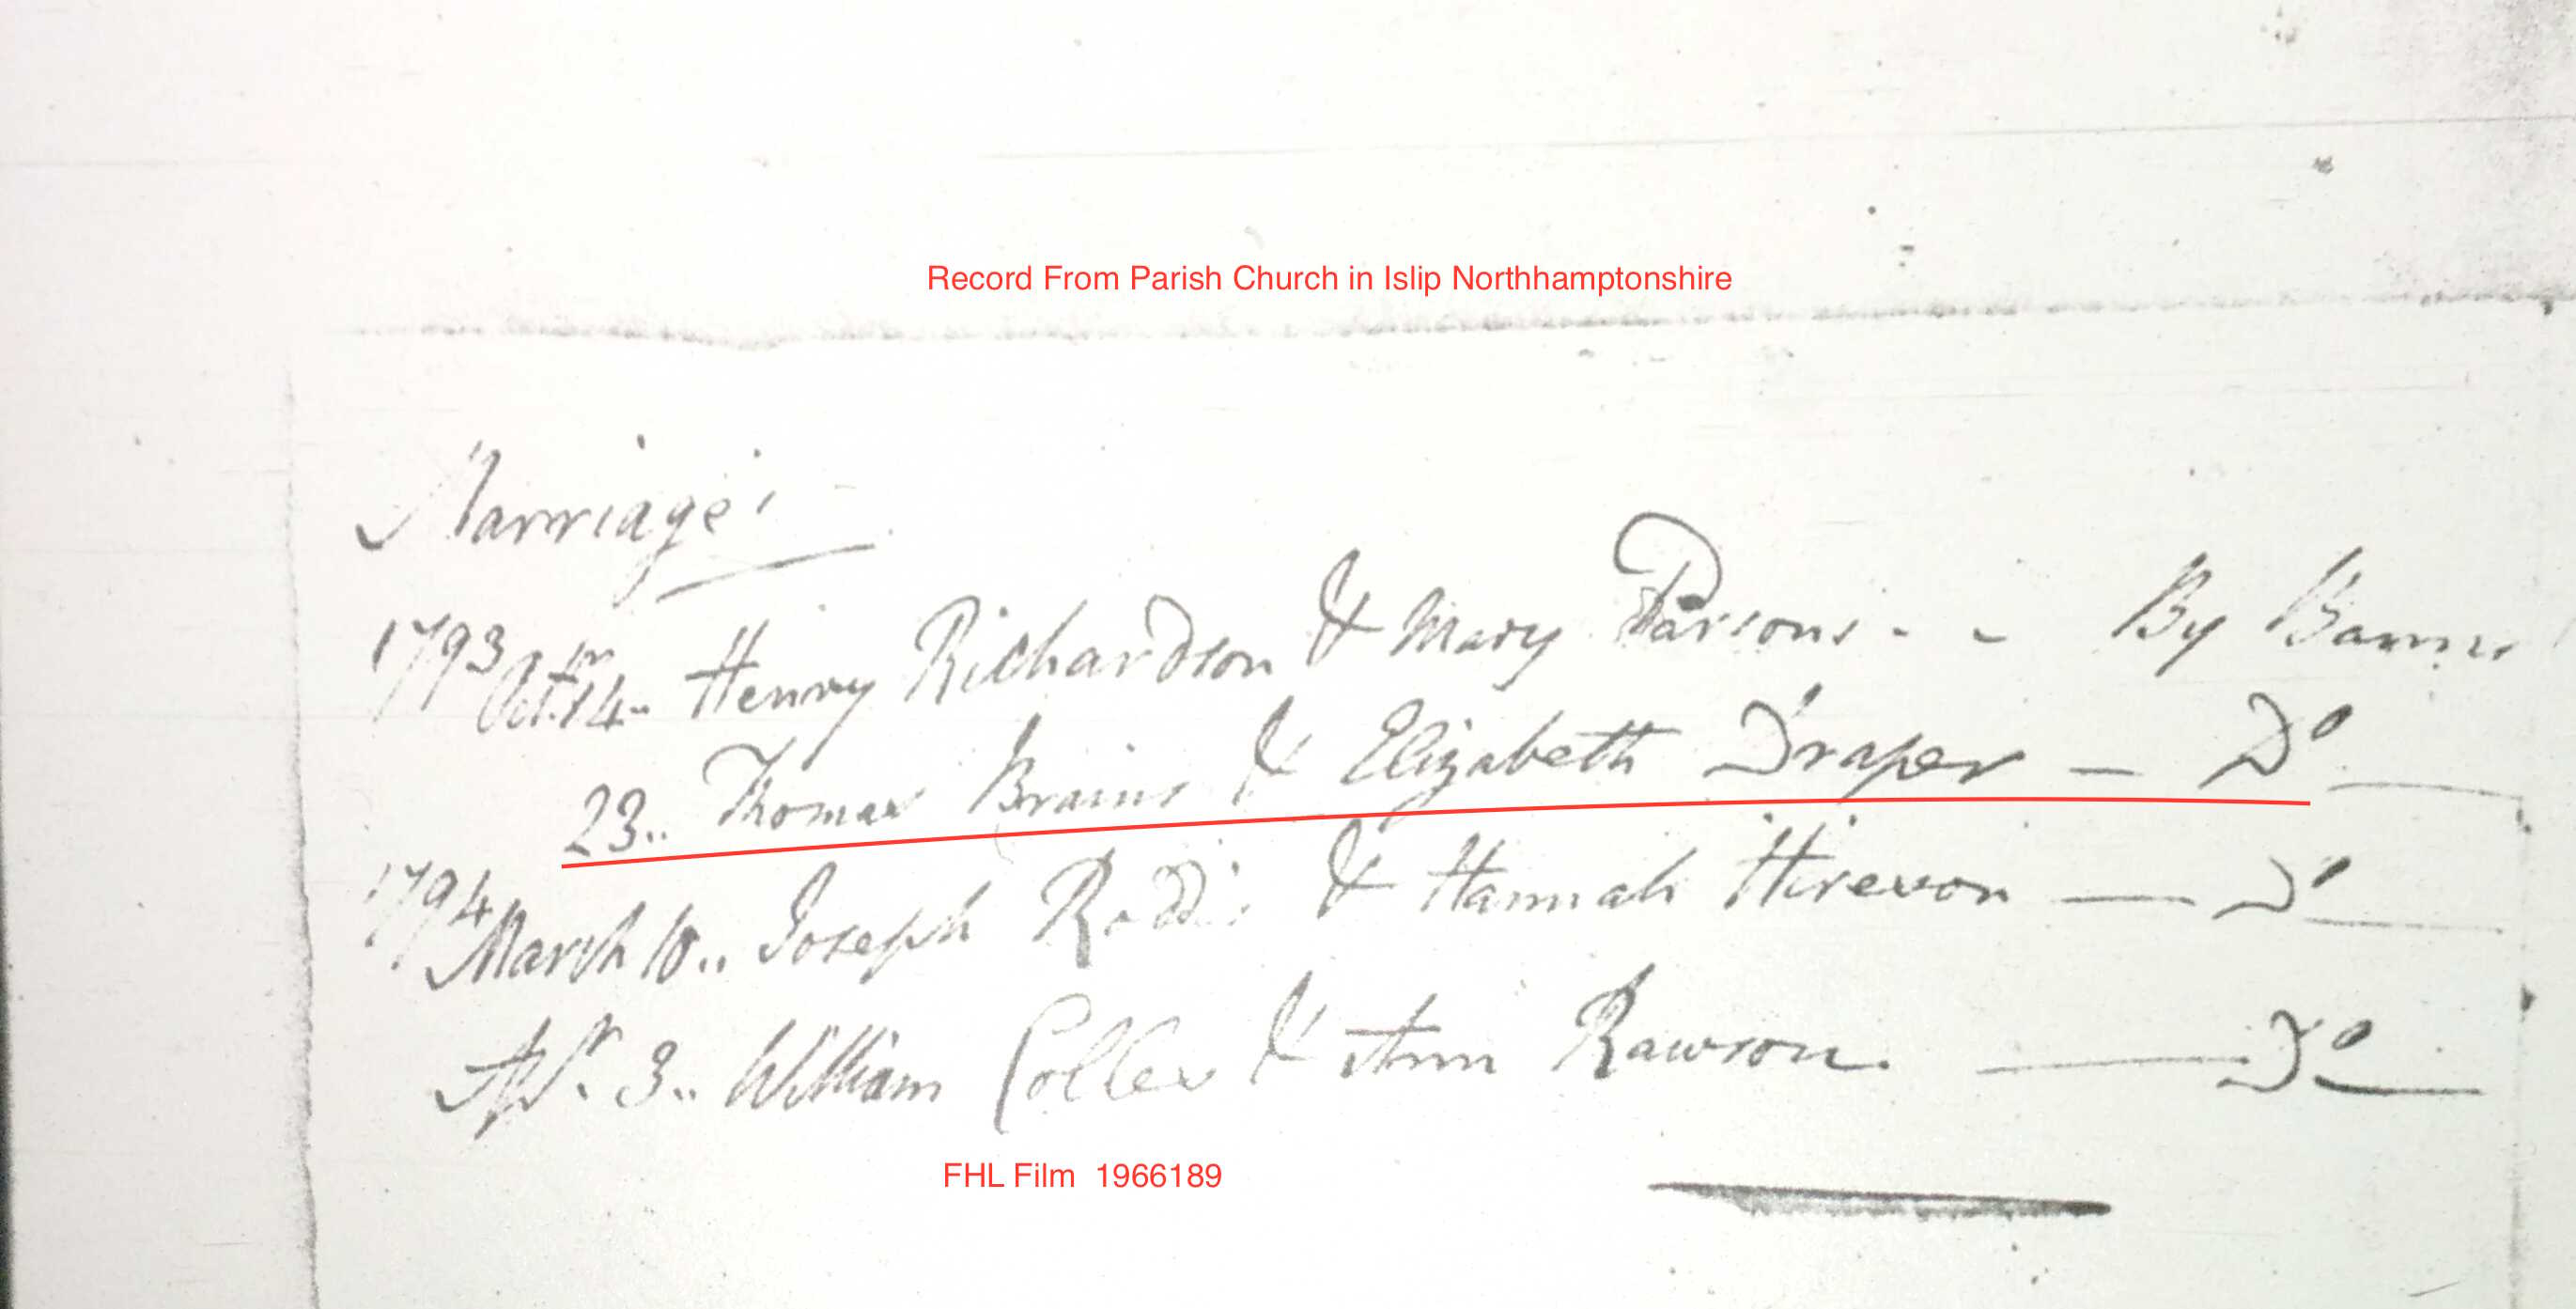 Record From Parish Church in Islip Northhamptonshire
Marriages
1793 Octr. 14.. Henry Richardson & Mary Parsons - - By Banns
23.. Thomas Brains & Elizabeth Draper — Do
1794 March 10.. Joseph Roddis & Hannah — Do
Apr. 3.. William & Ann Rawson. — Do
FHL Film 1966189